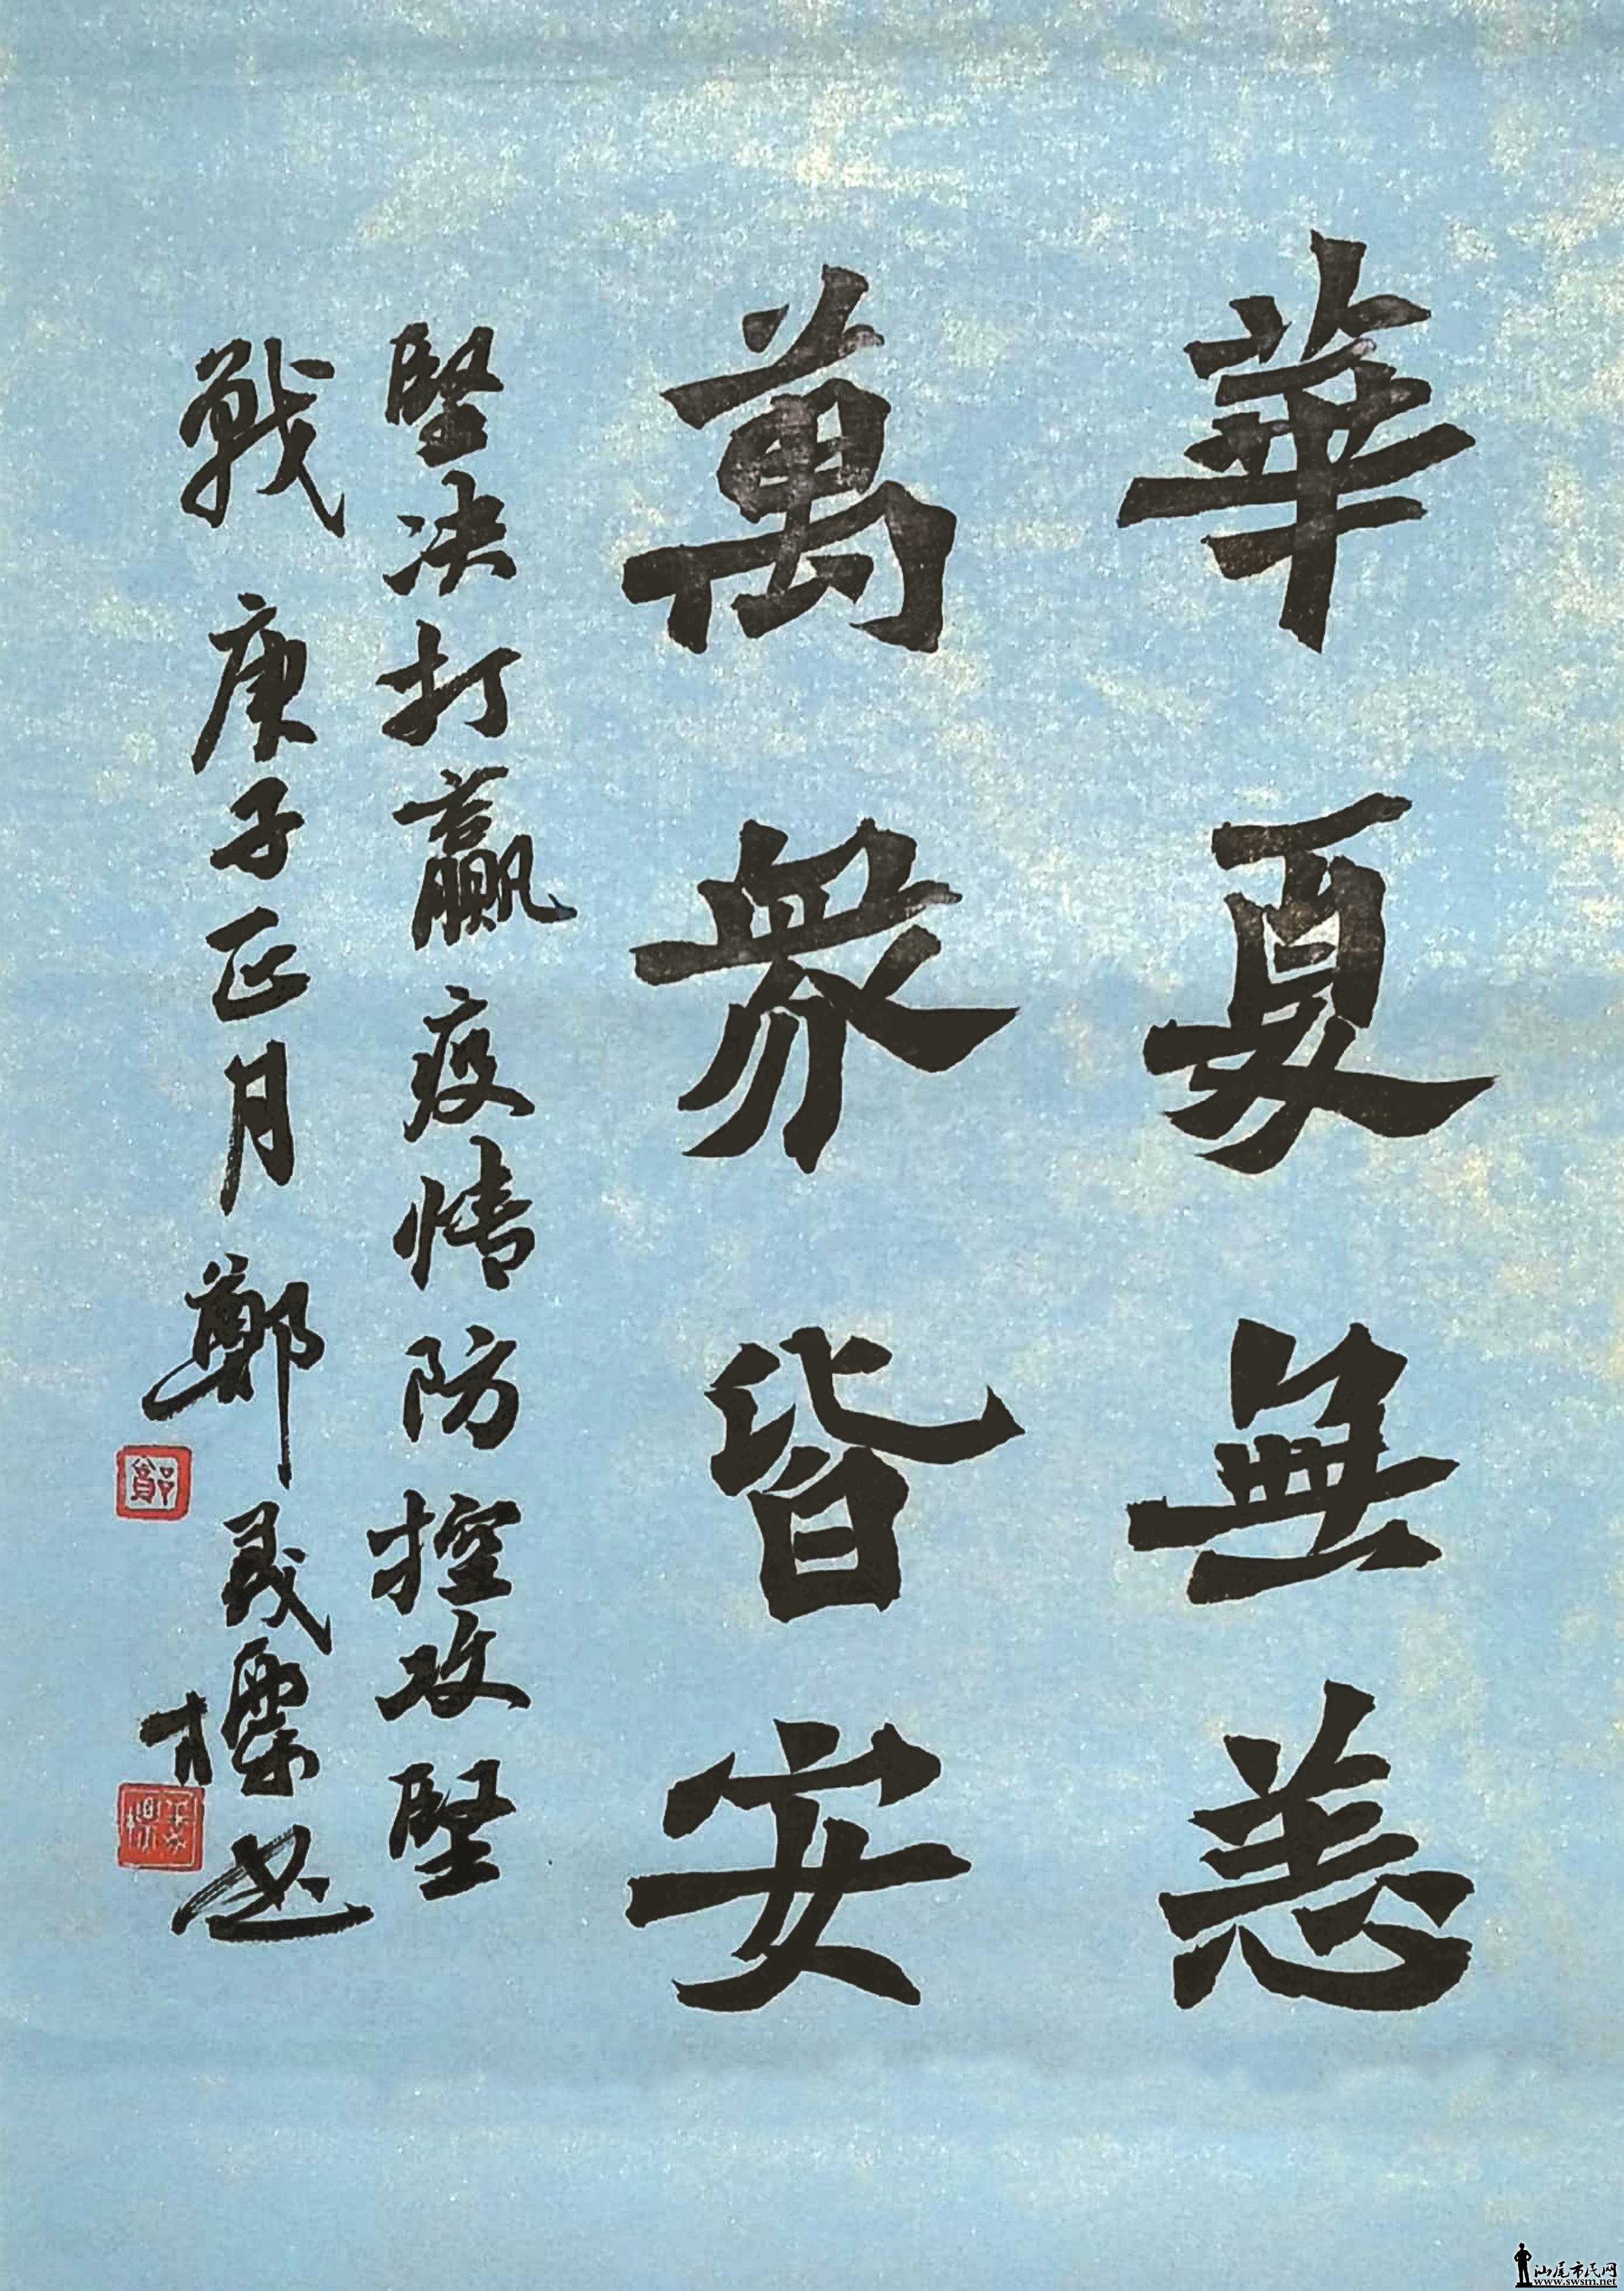 華夏無恙
萬衆皆安
堅决打贏疫情防控攻堅
戰 庚子正月 鄭
書
汕尾市民网
www.swsm.net